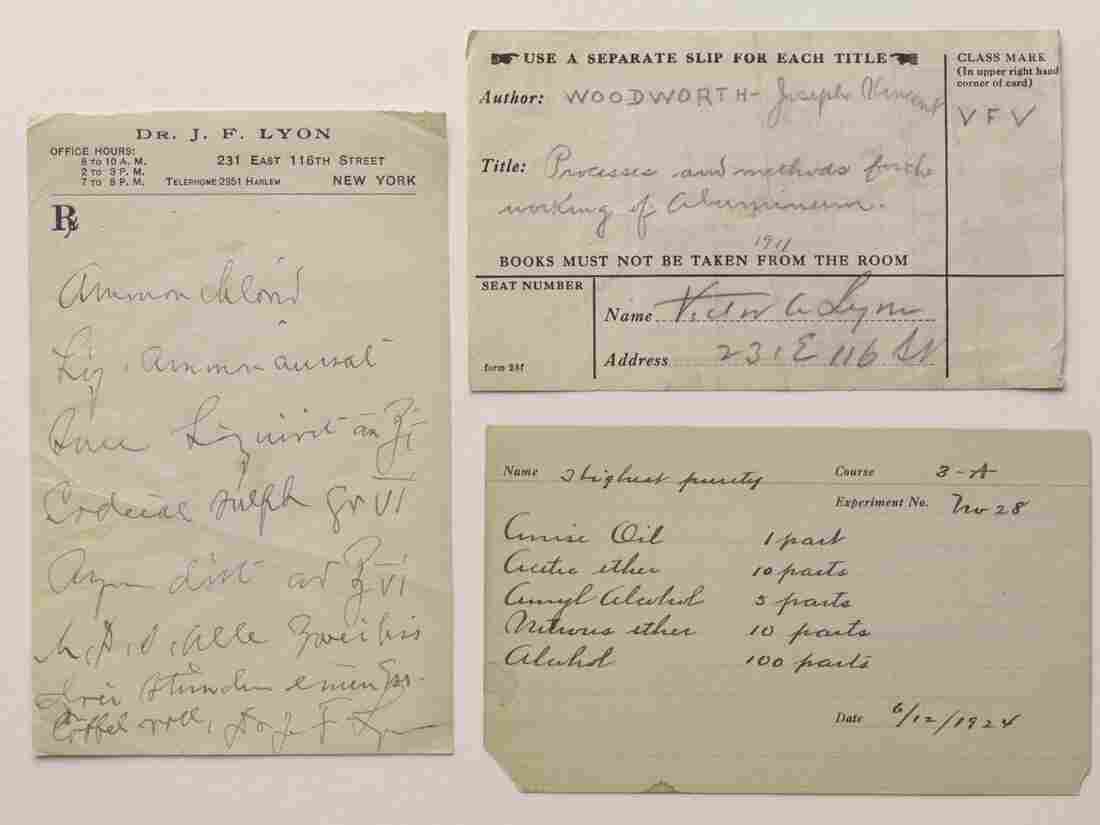 DR. J. F. LYON
OFFICE HOURS:
8 TO 10 A. M.
2 TO 3 P. M.
7 TO 8 P. M.
231 EAST 116TH STREET
TELEPHONE 2951 HARLEM
NEW YORK
Rx
Ammon chlorid
Liq. Ammon
Succ Liquirit āā ℥i
Codeiae sulph gr VI
Aqu dist ad ℥VI
M. D. S. Alle zwei bis
drei Stunden einen
voll, Dr J F Lyon
USE A SEPARATE SLIP FOR EACH TITLE
CLASS MARK
(In upper right hand
corner of card)
Author: WOODWORTH - Joseph Vincent
V F V
Title: Processes and methods for the
working of Aluminum.
1911
BOOKS MUST NOT BE TAKEN FROM THE ROOM
SEAT NUMBER
Name Victor A Lyon
Address 231 E 116 St
form 28f
Name highest purity
Course 3-A
Experiment No. No 28
Anise Oil 1 part
Acetic ether 10 parts
Amyl Alcohol 5 parts
Nitrous ether 10 parts
Alcohol 100 parts
Date 6/12/1924